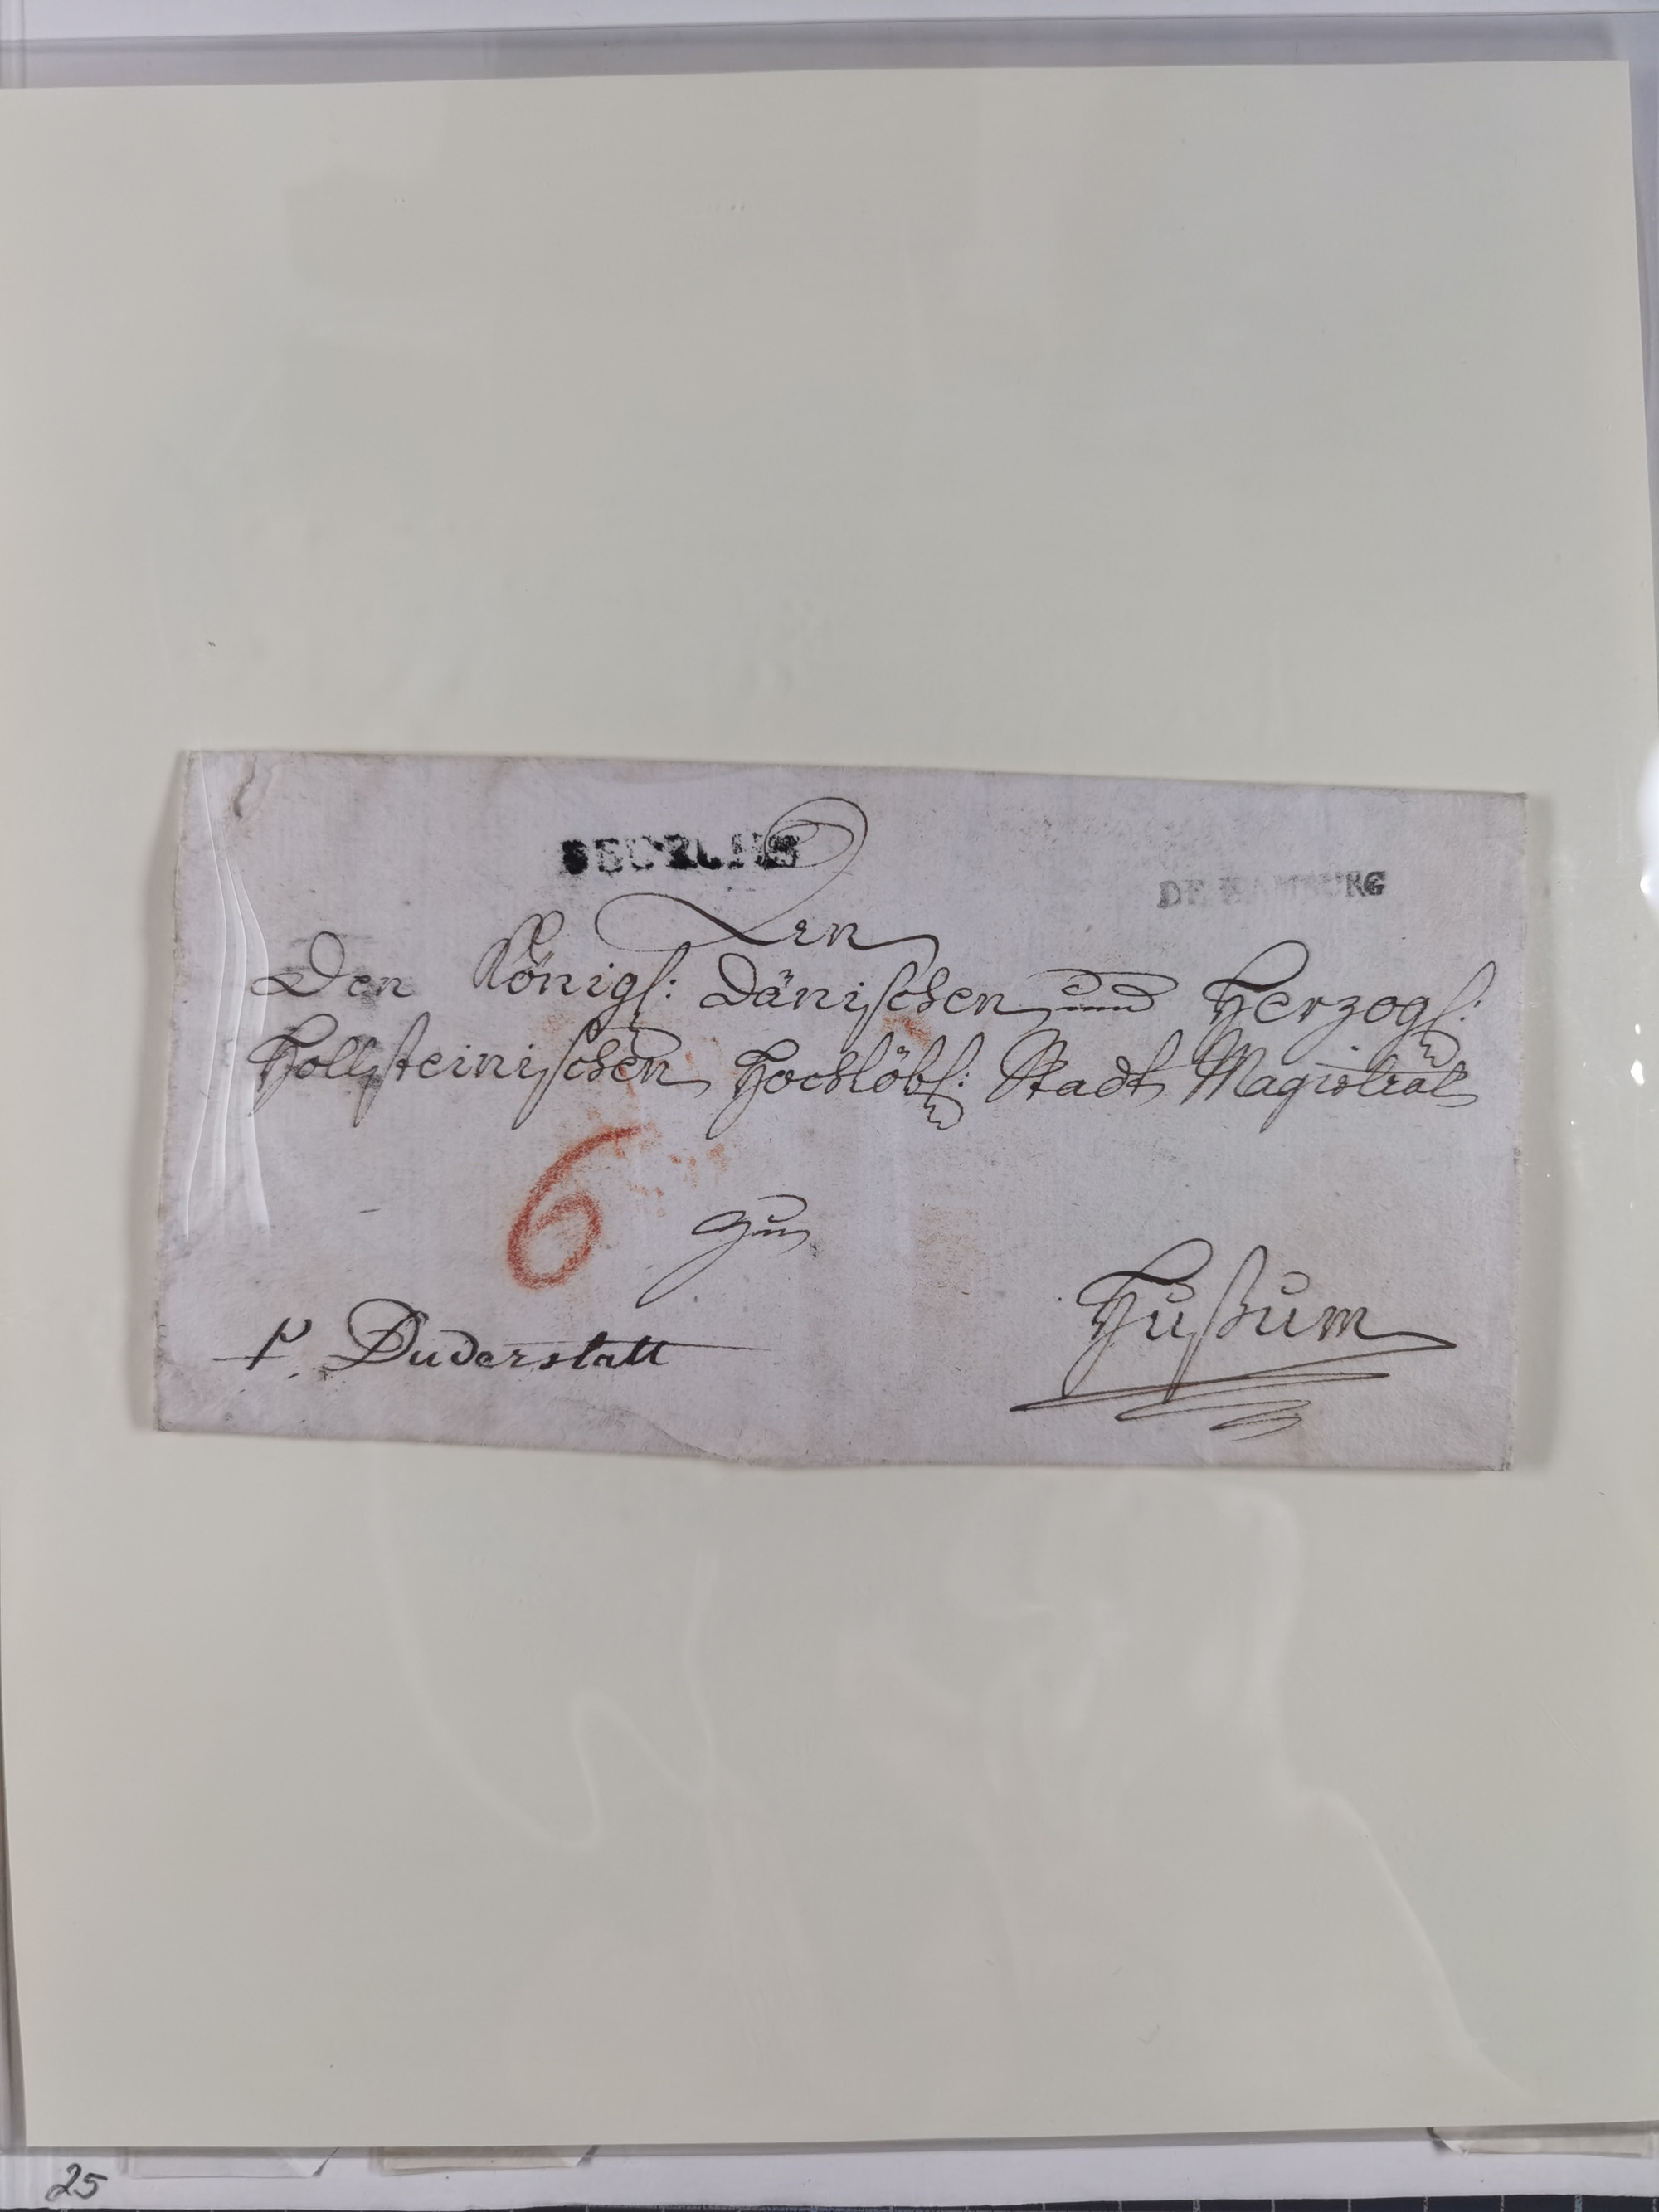 DE HAMBURG
Den
Den Königl: Dänischen und Herzogl:
Hollsteinischen Hochlöbl: Stadt Magistrat
6
zu
Hußum
p. Duderstatt
25